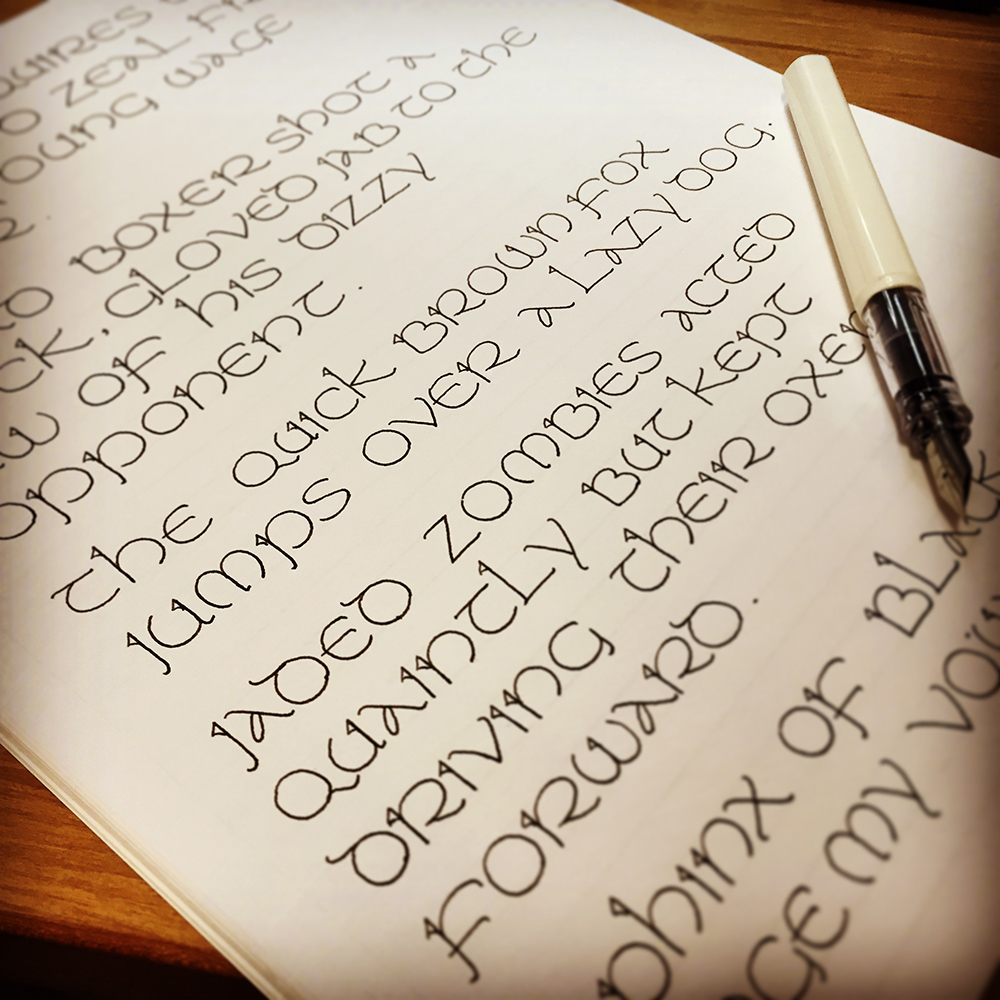 ZEAL
OUNG WAGE
BOXER SHOT A
CK, GLOVED JAB TO THE
W OF HIS DIZZY
OPPONENT.
THE QUICK BROWN FOX
JUMPS OVER A LAZY DOG.
JADED ZOMBIES ACTED
QUAINTLY BUT KEPT
DRIVING THEIR OXEN
FORWARD.
PHINX OF BLACK
GE MY